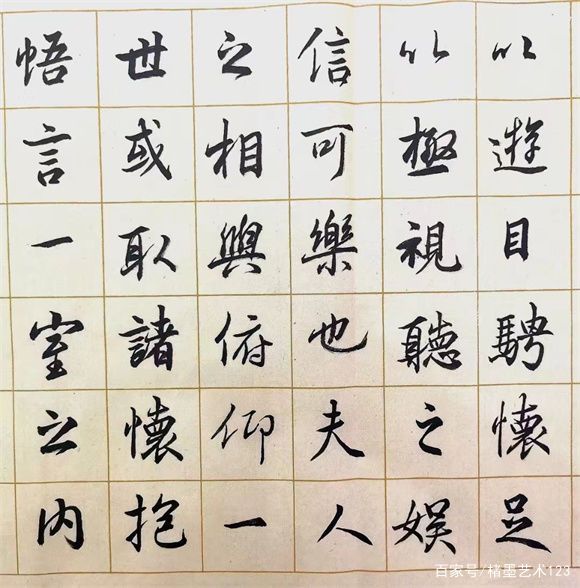 以遊目騁懷足
以極視聽之娛
信可樂也夫人
之相與俯仰一
世或取諸懷抱
悟言一室之內
百家号/楮墨艺术123